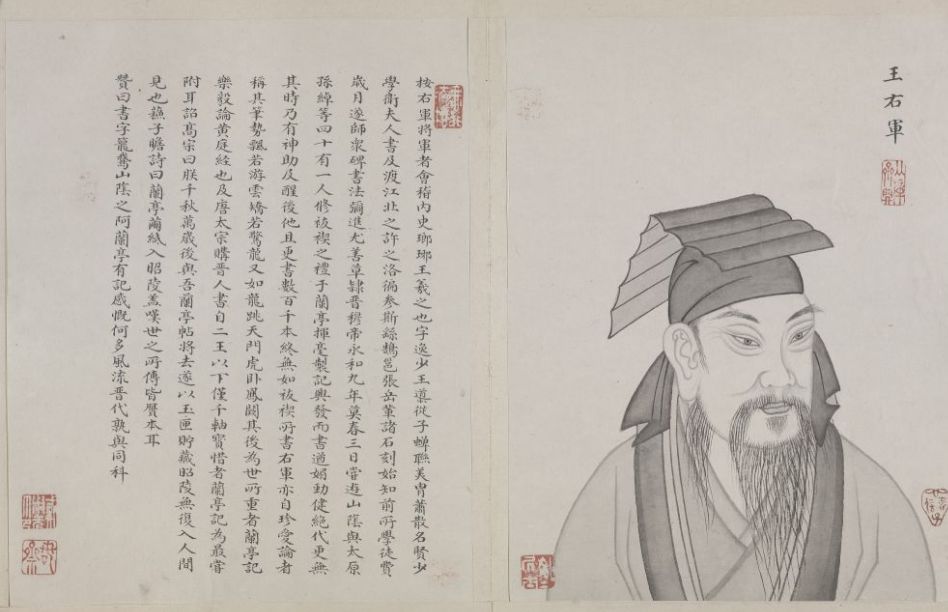 王右軍
按右軍將軍者會稽內史瑯琊王羲之也字逸少王導從子蟬聯美胄蕭散名賢少
學衛夫人書及渡江北之許之洛徧參斯繇鵠邕張岳華諸石刻始知前所學徒費
歲月遂師衆碑書法彌進尤善草隸晋穆帝永和九年莫春三日嘗遊山陰與太原
孫綽等四十有一人修祓禊之禮于蘭亭揮毫製記興發而書遒媚勁健絶代更無
其時乃有神助及醒後他且更書數百千本終無如祓禊所書右軍亦自珍愛論者
稱其筆勢飄若游雲矯若驚龍又如龍跳天門虎卧鳳闕其後為世所重者蘭亭記
樂毅論黄庭經也及唐太宗購晋人書自二王以下僅千軸寶惜者蘭亭記為最嘗
附耳詔髙宗曰朕千秋萬歲後與吾蘭亭帖將去遂以玉匣貯藏昭陵無復入人間
見也蘇子瞻詩曰蘭亭繭紙入昭陵盖嘆世之所傳皆贋本耳
贊曰書字籠鵞山陰之阿蘭亭有記感慨何多風流晋代孰與同科